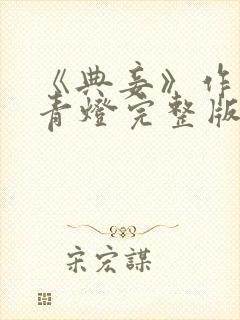 《典妾》作
青燈完整版
宋宏謀